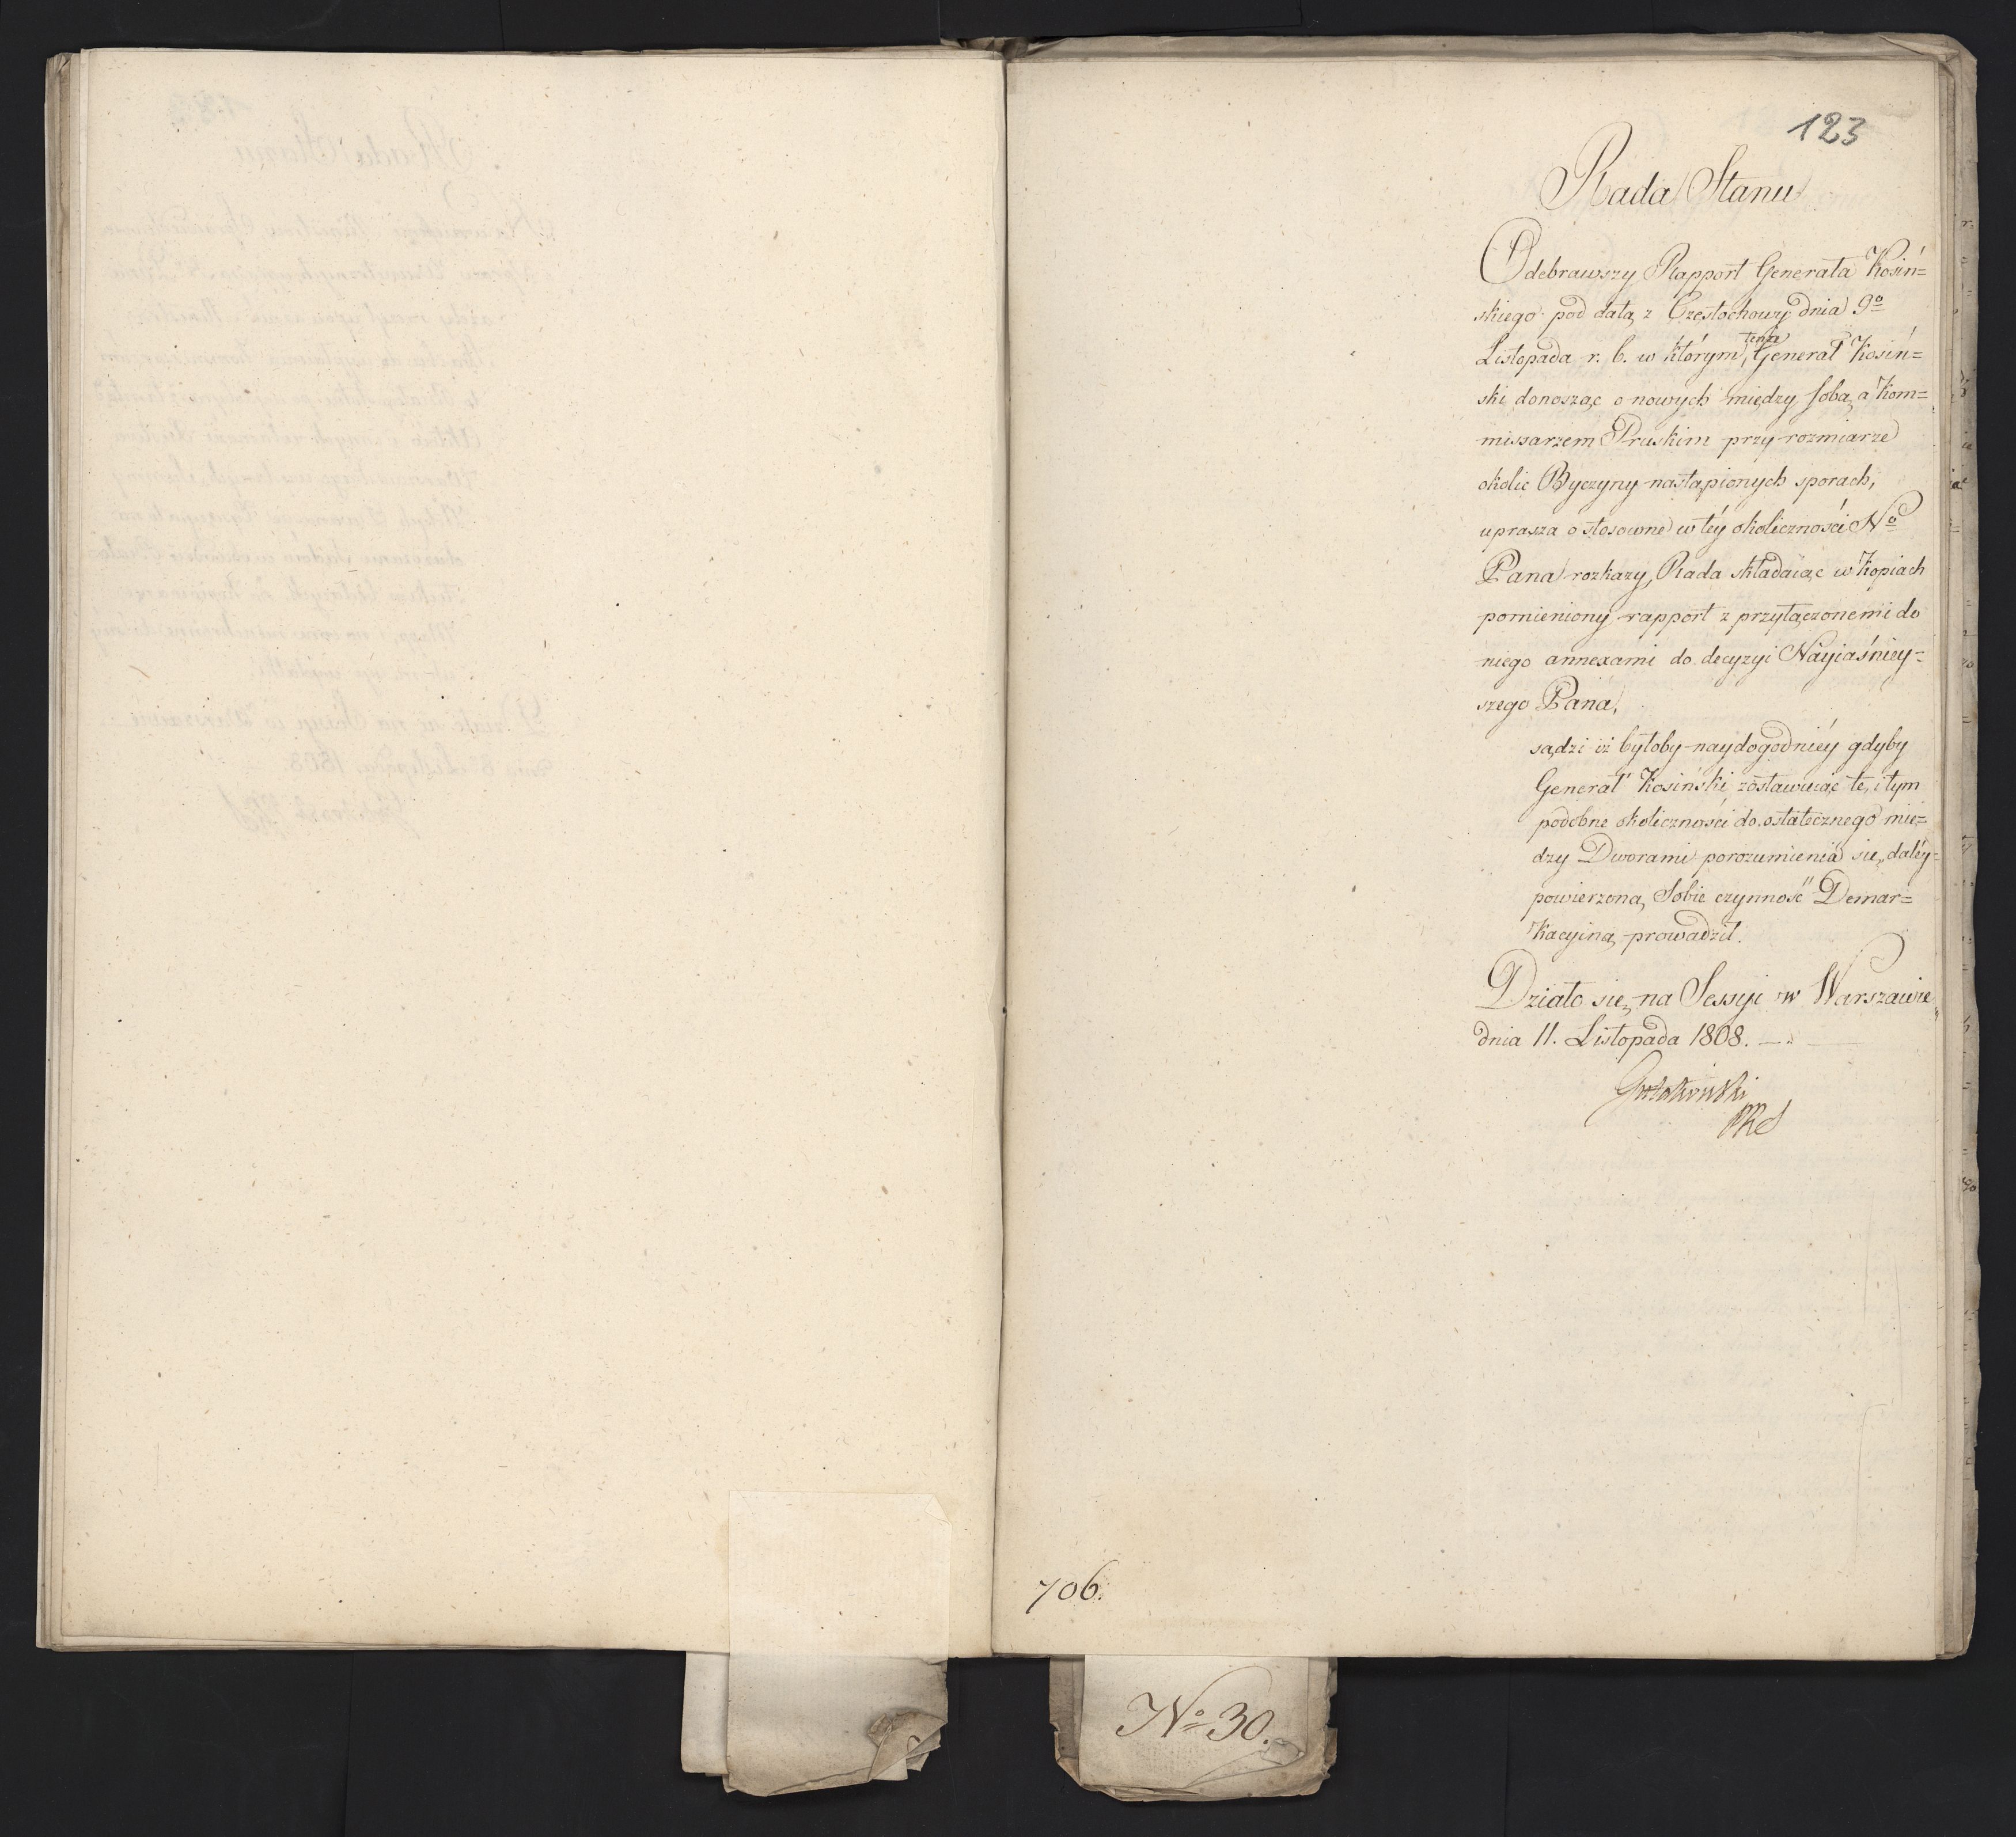 123
Rada Stanu
Odebrawszy Rapport Generała Kosiń=
skiego pod datą z Częstochowy dnia 9º
Listopada r. b. w którym, tenże Generał Kosiń=
ski donosząc o nowych między sobą a Kom=
missarzem Pruskim przy rozmiarze
okolic Byczyny nastąpionych sporach,
uprasza o stosowne w téy okoliczności Nº
Pana rozkazy, Rada składaiąc w Kopiach
pomieniony rapport z przyłączonemi do
niego annexami do decyzyi Nayiaśniey=
szego Pana,
sądzi iż byłoby naydogodniéy gdyby
Generał Kosiński zostawuiąc te, i tym
podobne okoliczności do ostatecznego mię=
dzy Dworami porozumienia się, daléy
powierzoną Sobie czynność Demar=
kacyiną prowadził.
Działo się na Sessyi w Warszawie
dnia 11. Listopada 1808.
706.
Nº 30.